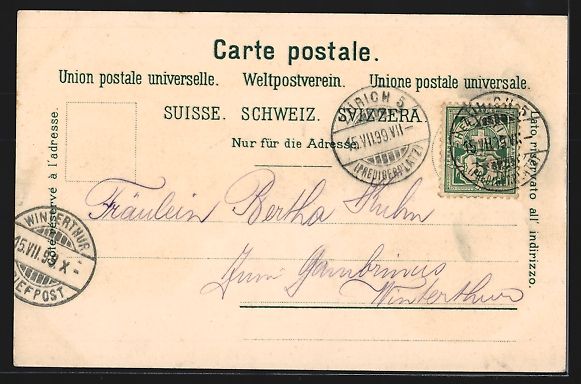 Carte postale.
Union postale universelle. Weltpostverein. Unione postale universale.
SUISSE. SCHWEIZ. SVIZZERA.
Nur für die Adresse.
Côté réservé à l'adresse.
Lato riservato all' indirizzo.
ZÜRICH 5
15.VII.99.VII-
(PREDIGERPLATZ)
Fräulein Bertha Kuhn
Zum Gambrinus
Winterthur
WINTERTHUR
15.VII.99.X-
BRIEFPOST.